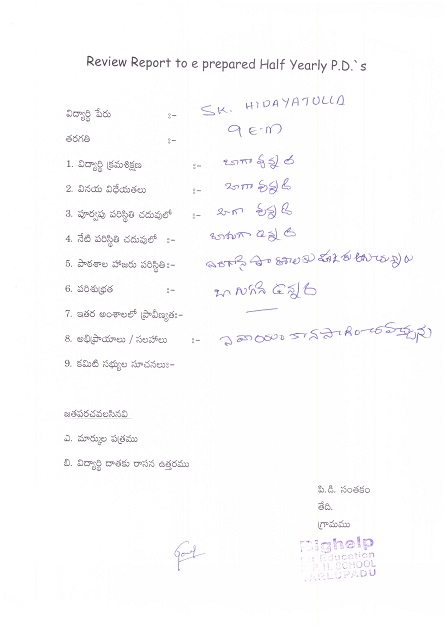 Review Report to e prepared Half Yearly P.D.`s
విద్యార్థి పేరు :- SK. HIDAYATULLA
తరగతి :- 9 E.M
1. విద్యార్థి క్రమశిక్షణ :- బాగా వున్నది
2. వినయ విధేయతలు :- బాగా వున్నది
3. పూర్వపు పరిస్థితి చదువులో :- బాగా వున్నది
4. నేటి పరిస్థితి చదువులో :- బాగుగా వున్నది
5. పాఠశాల హాజరు పరిస్థితి:-
6. పరిశుభ్రత :- వున్నది
7. ఇతర అంశాలలో ప్రావీణ్యత:-
8. అభిప్రాయాలు / సలహాలు :- సహాయం కొనసాగించవచ్చును
9. కమిటి సభ్యుల సూచనలు:-
జతపరచవలసినవి
ఎ. మార్కుల పత్రము
బి. విద్యార్థి దాతకు రాసిన ఉత్తరము
పి.డి. సంతకం
తేది.
గ్రామము
Bighelp
Education
H. SCHOOL
TARLUPADU